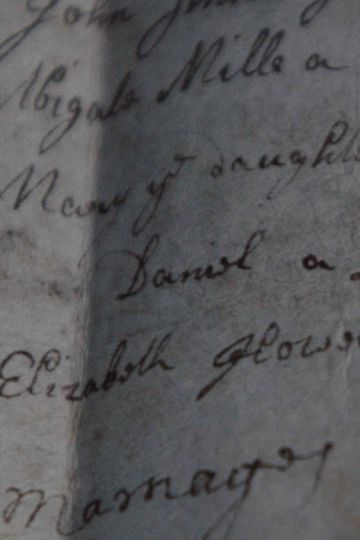 John
Abigale Mills a
Mary yᵉ daught
Daniel a
Elizabeth Glove
Marriages